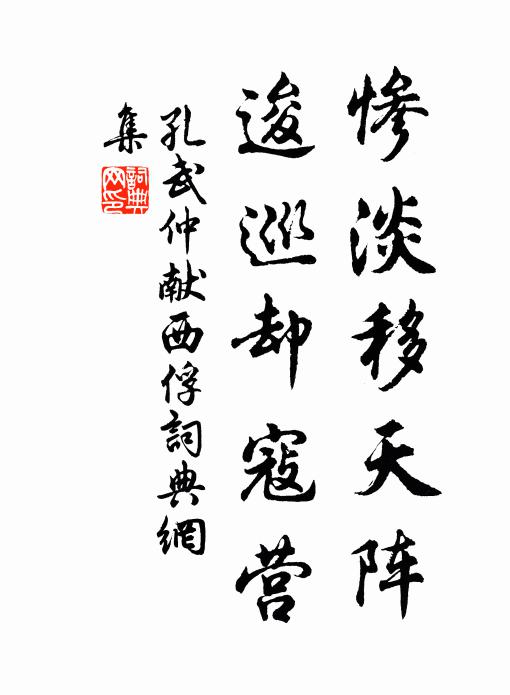 惨淡移天阵
逡巡却寇营
孔武仲献西俘詞典網
集
詞典
网印